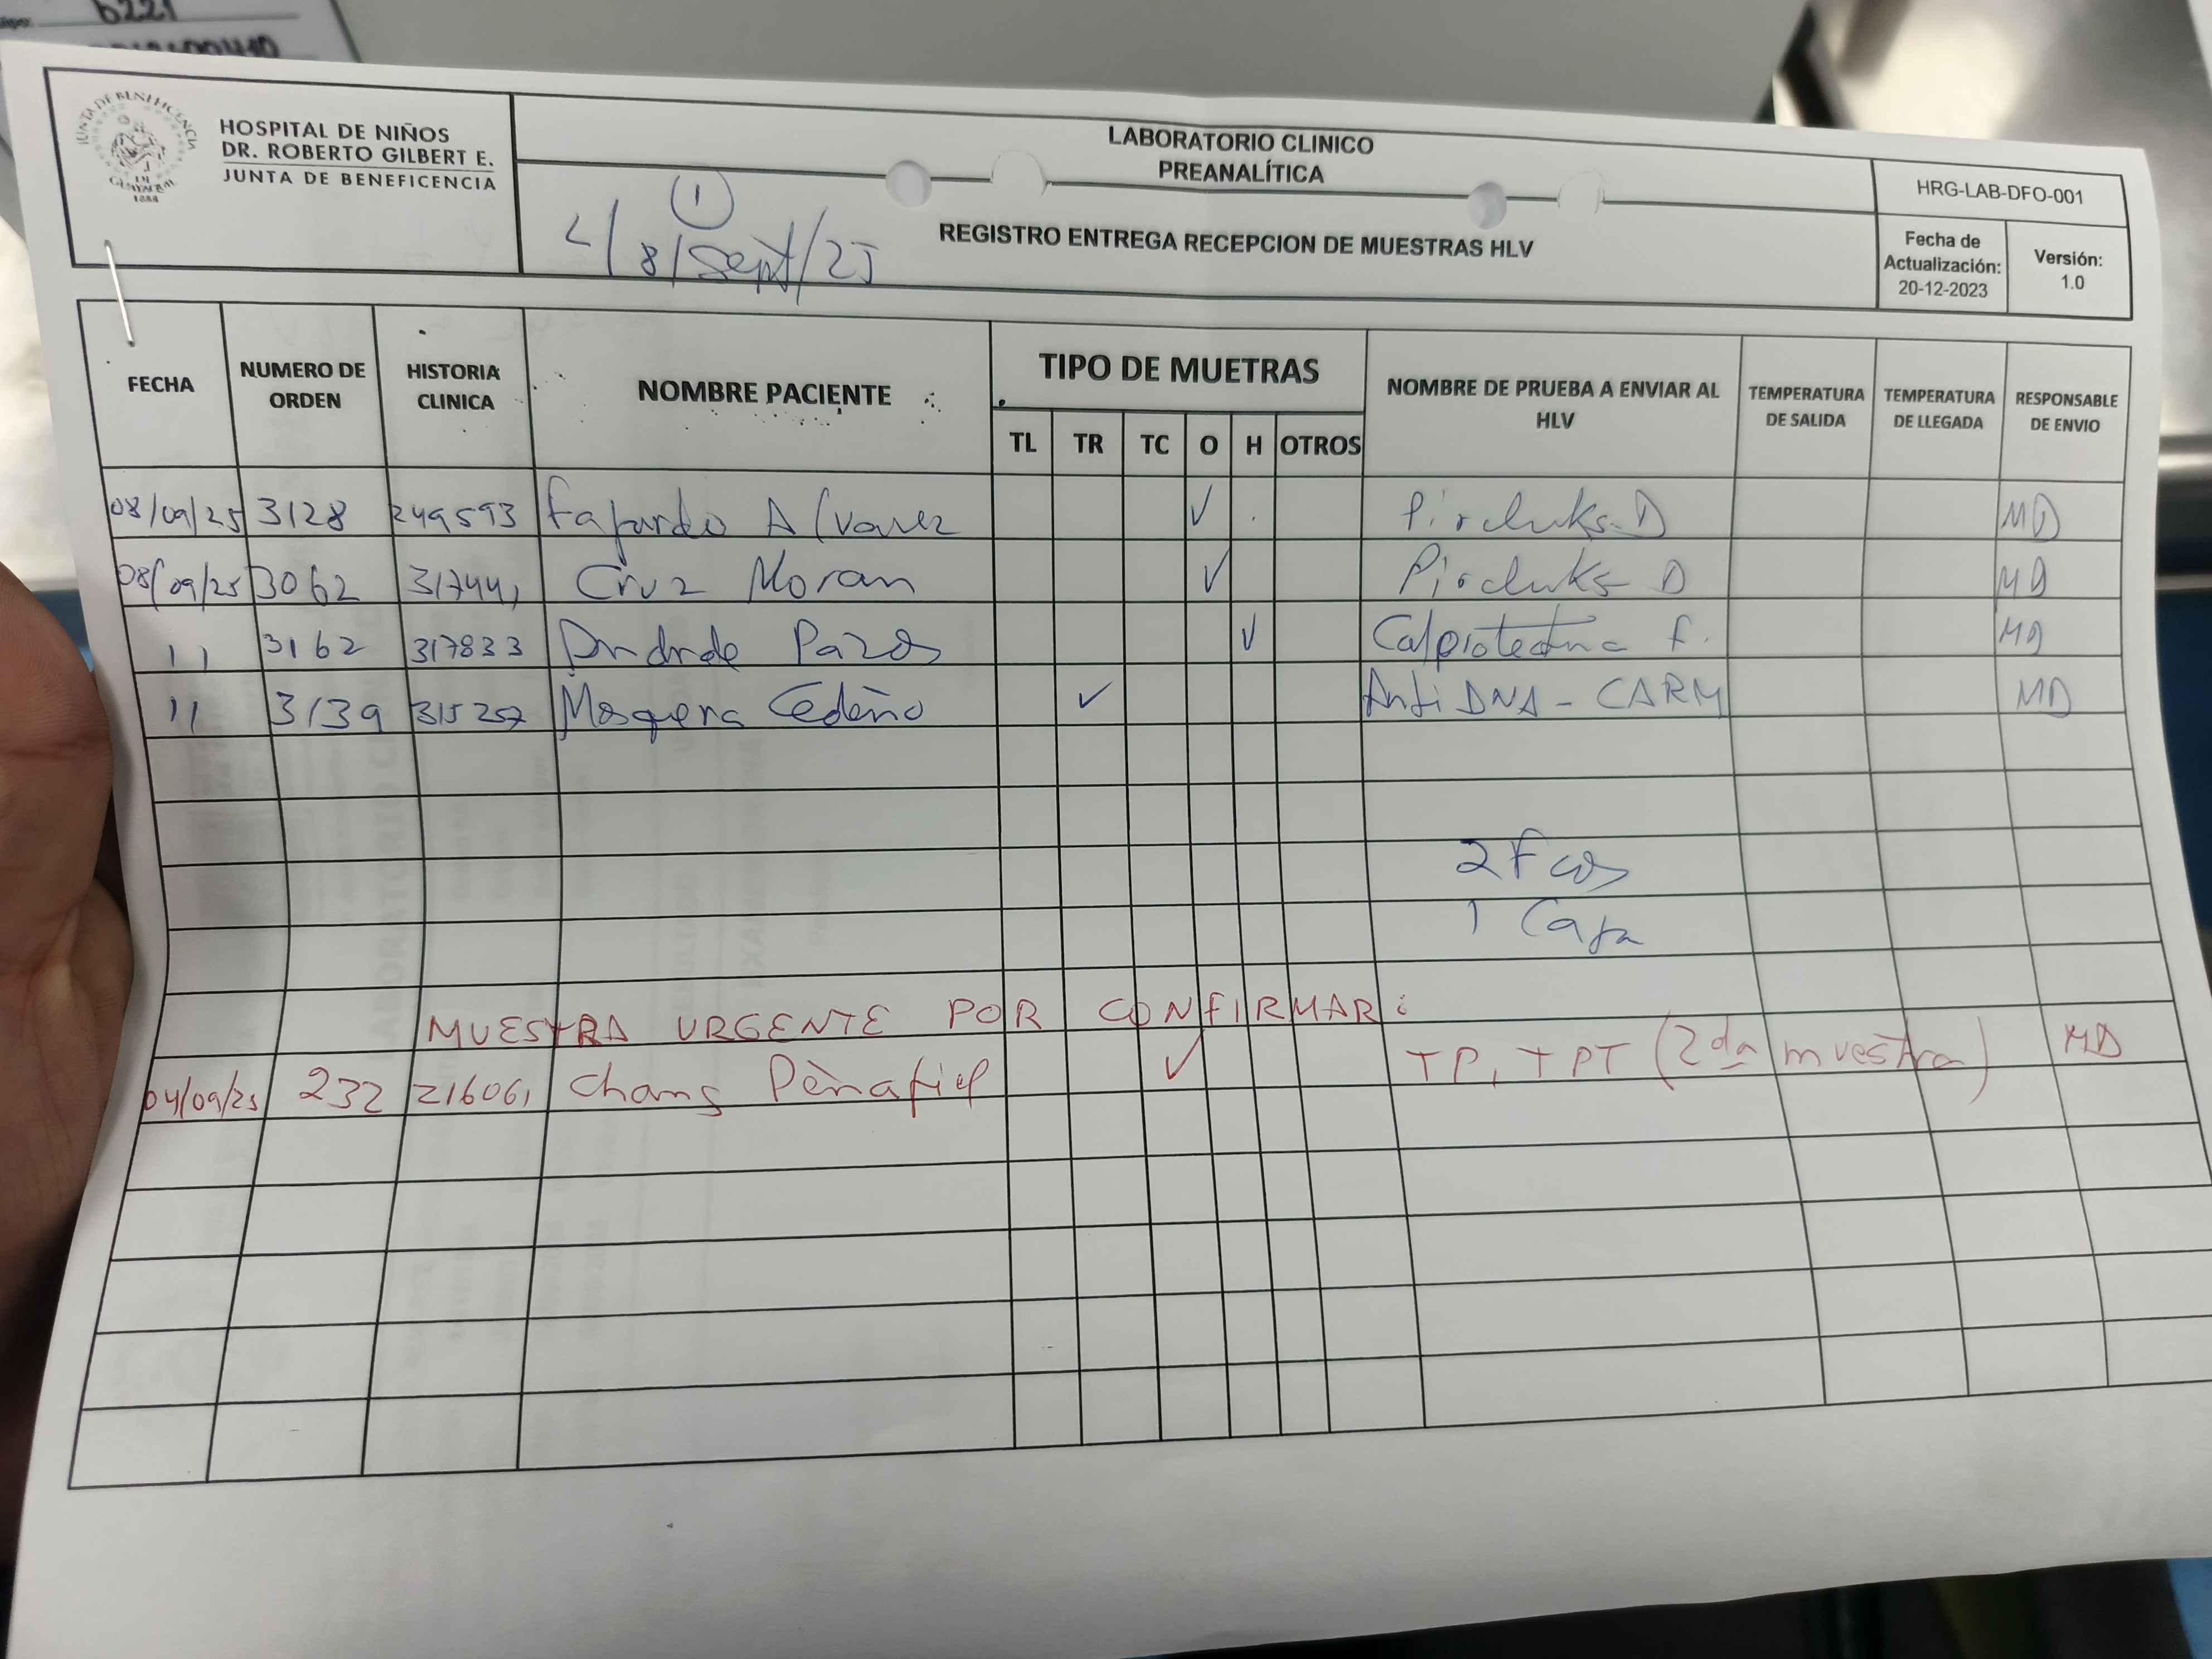 6221
JUNTA DE BENEFICENCIA
DE GUAYAQUIL
1888
HOSPITAL DE NIÑOS
DR. ROBERTO GILBERT E.
JUNTA DE BENEFICENCIA
LABORATORIO CLINICO
PREANALÍTICA
1
L/8/Sept/25
REGISTRO ENTREGA RECEPCION DE MUESTRAS HLV
HRG-LAB-DFO-001
Fecha de Actualización: 20-12-2023
Versión: 1.0
FECHA NUMERO DE ORDEN HISTORIA CLINICA NOMBRE PACIENTE TIPO DE MUETRAS NOMBRE DE PRUEBA A ENVIAR AL HLV TEMPERATURA DE SALIDA TEMPERATURA DE LLEGADA RESPONSABLE DE ENVIO
TL TR TC O H OTROS
08/09/25 3128 249593 Fajardo Alvarez ✓ D MD
08/09/25 3062 317441 Cruz Moran ✓ D MD
11 3162 317833 Andrade Pazos ✓ Calprotectina F. MD
11 3139 315257 Mosquera Cedeño ✓ Anti DNA - CARM MD
2 Fcos
1 Caja
MUESTRA URGENTE POR CONFIRMAR:
04/09/25 232 216061 Chang Peñafiel ✓ TP, TPT (2da muestra) MD